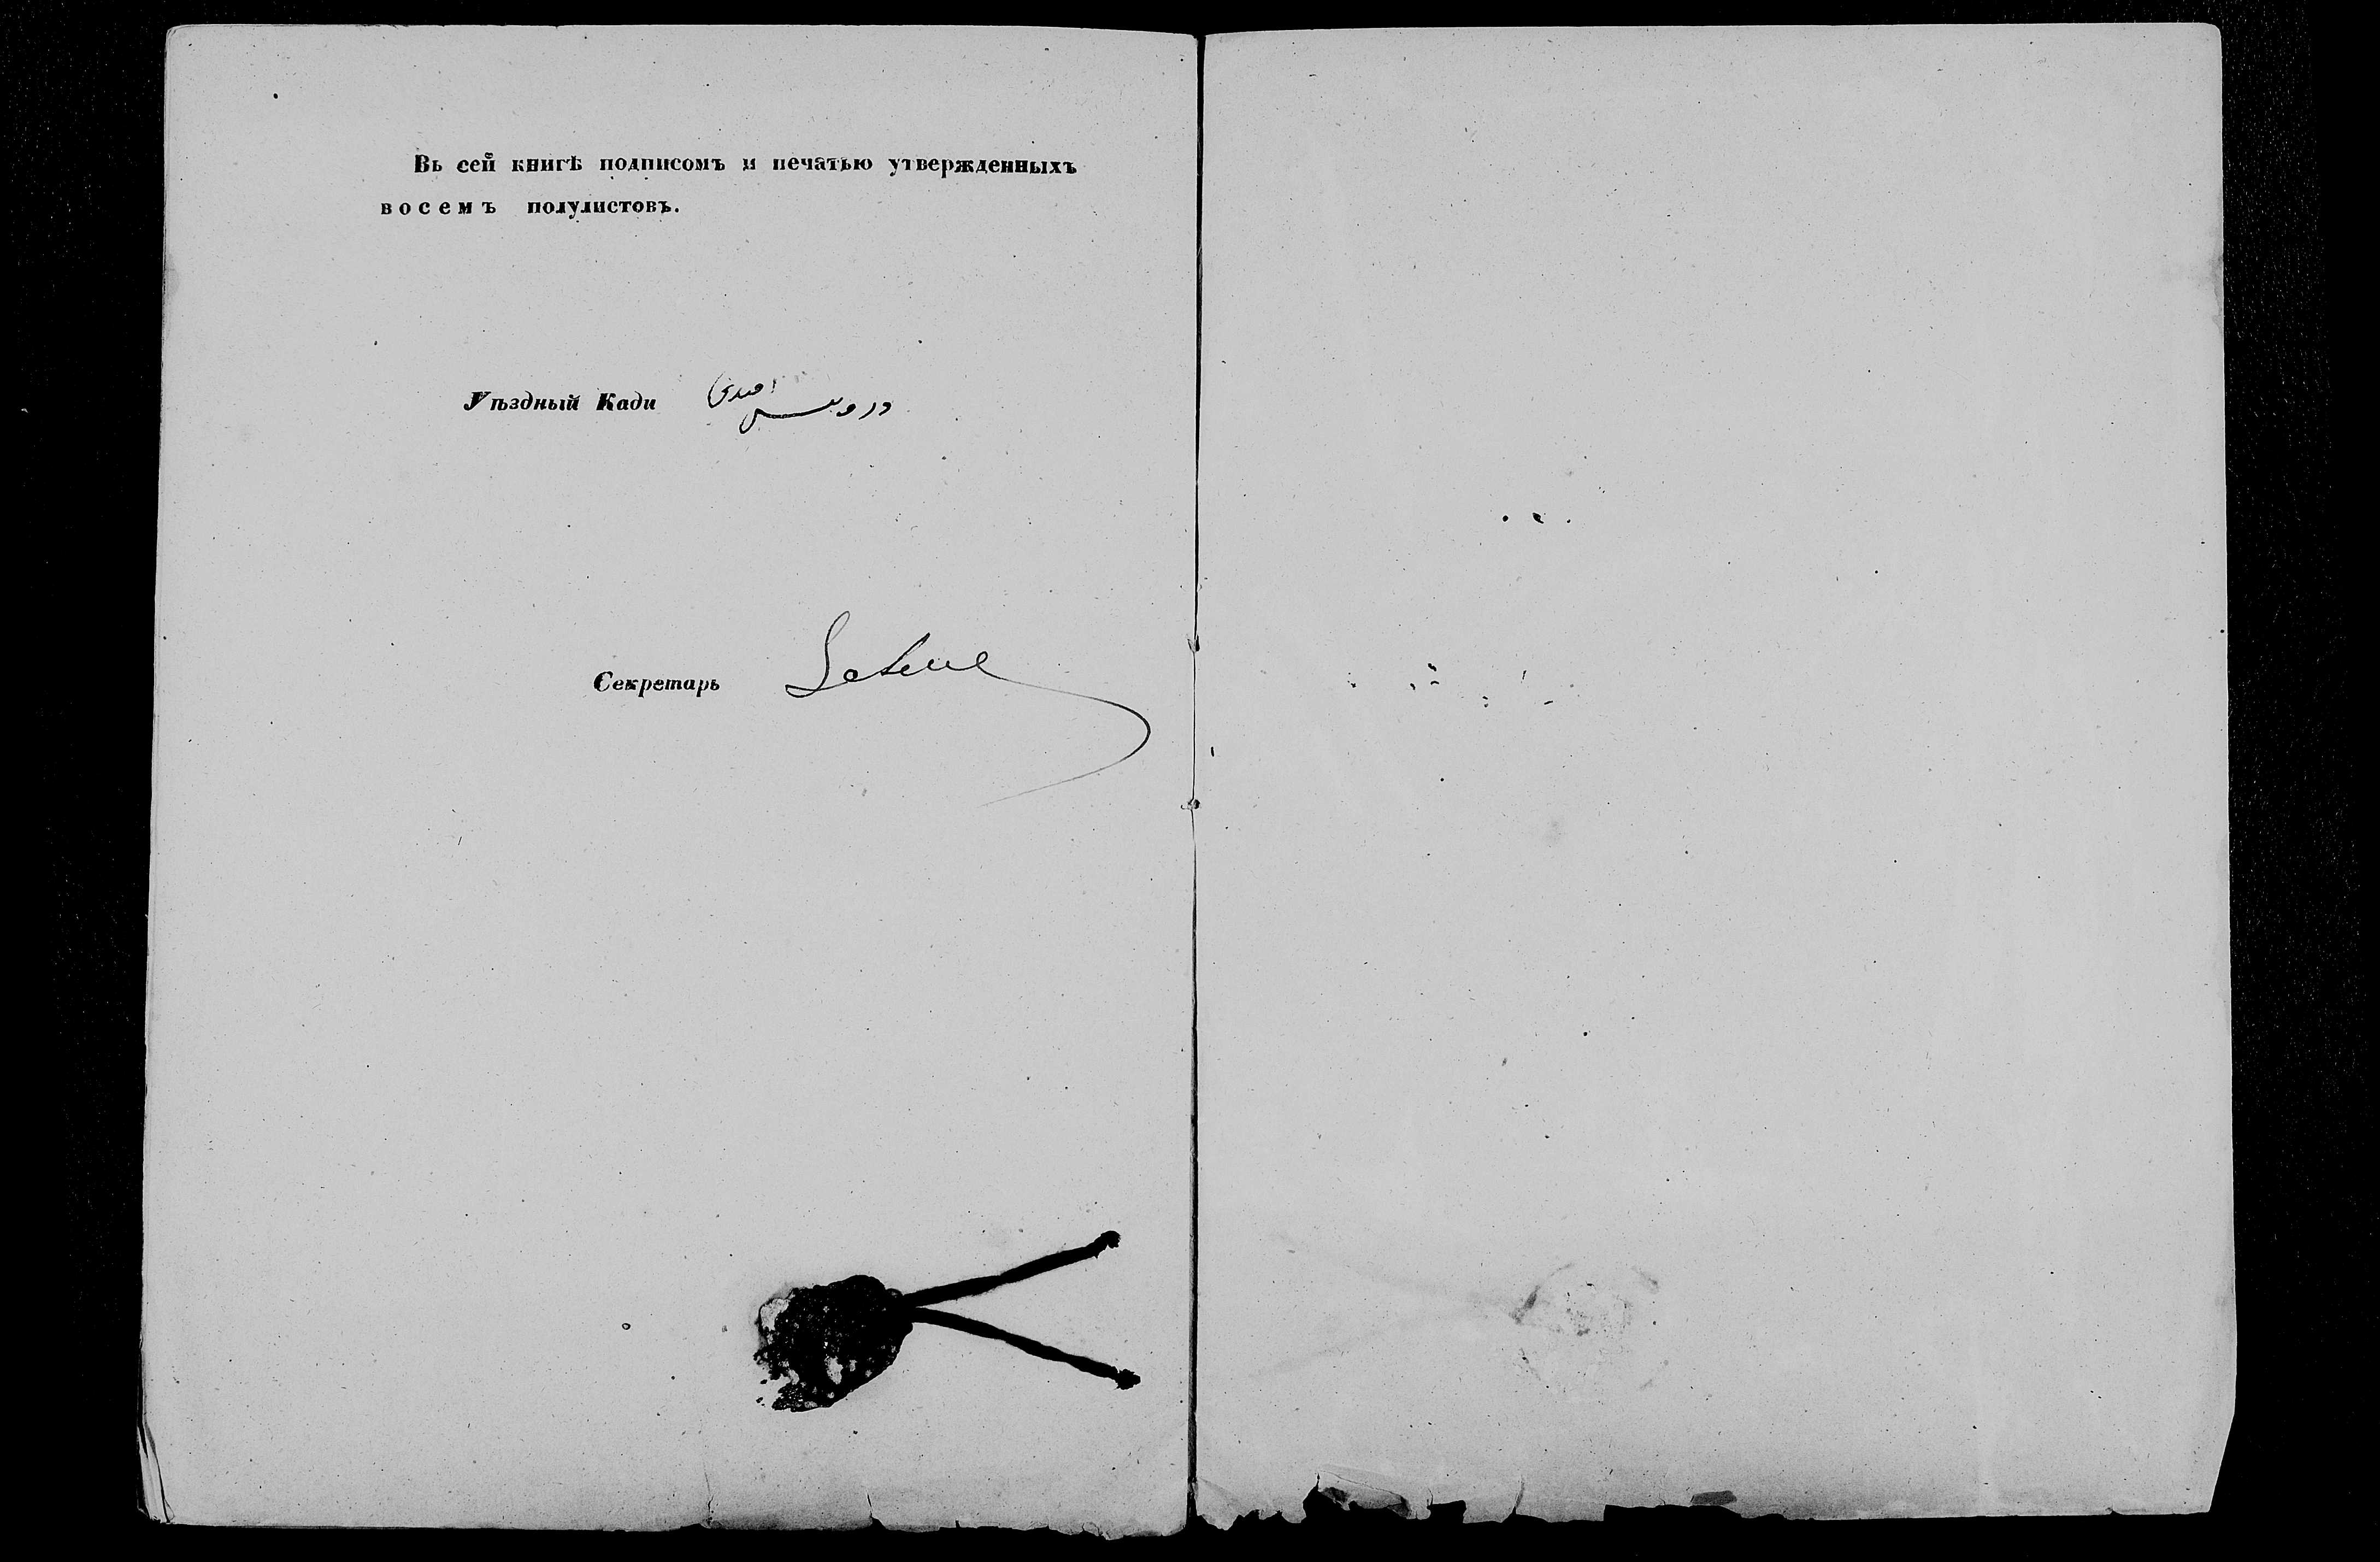 Въ сей книгѣ подписомъ и печатью утвержденныхъ
восемъ полулистовъ.
Уѣздный Кади درويش افندی
Секретарь